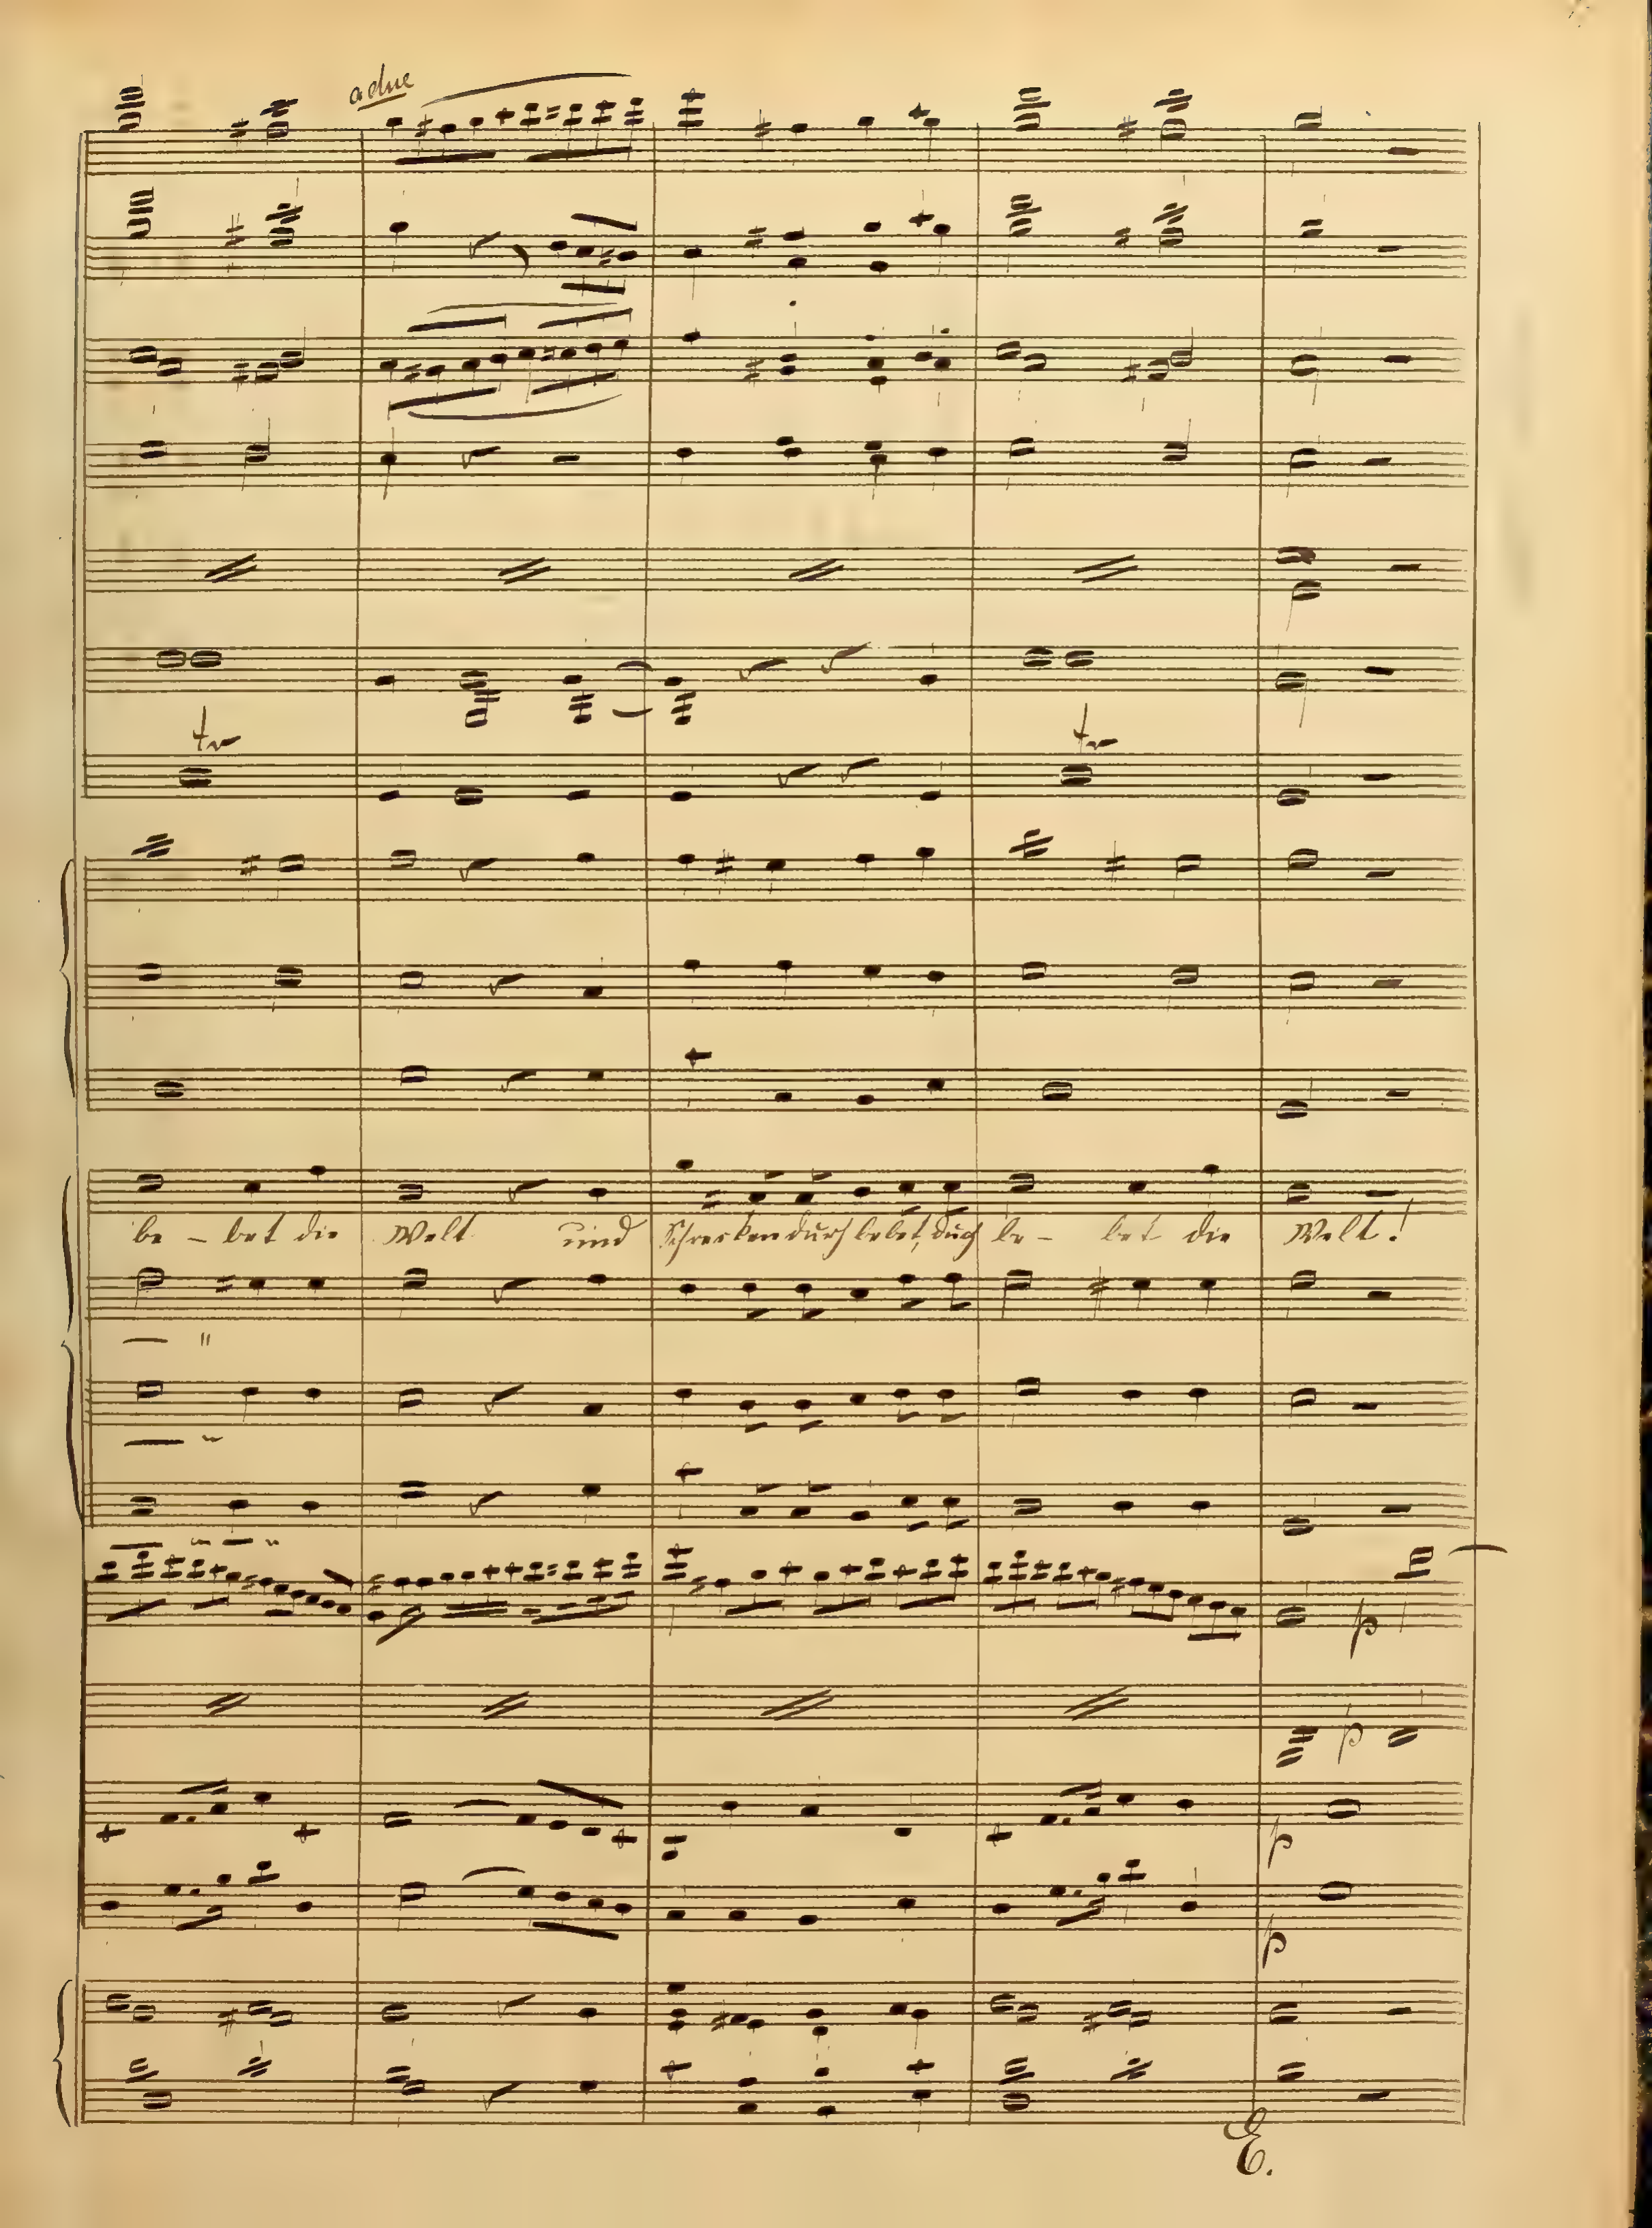 a due
tr
tr
be - bet die Welt und Schrecken durchbebet, durch be - bet die Welt!
p
p
p
p
E.